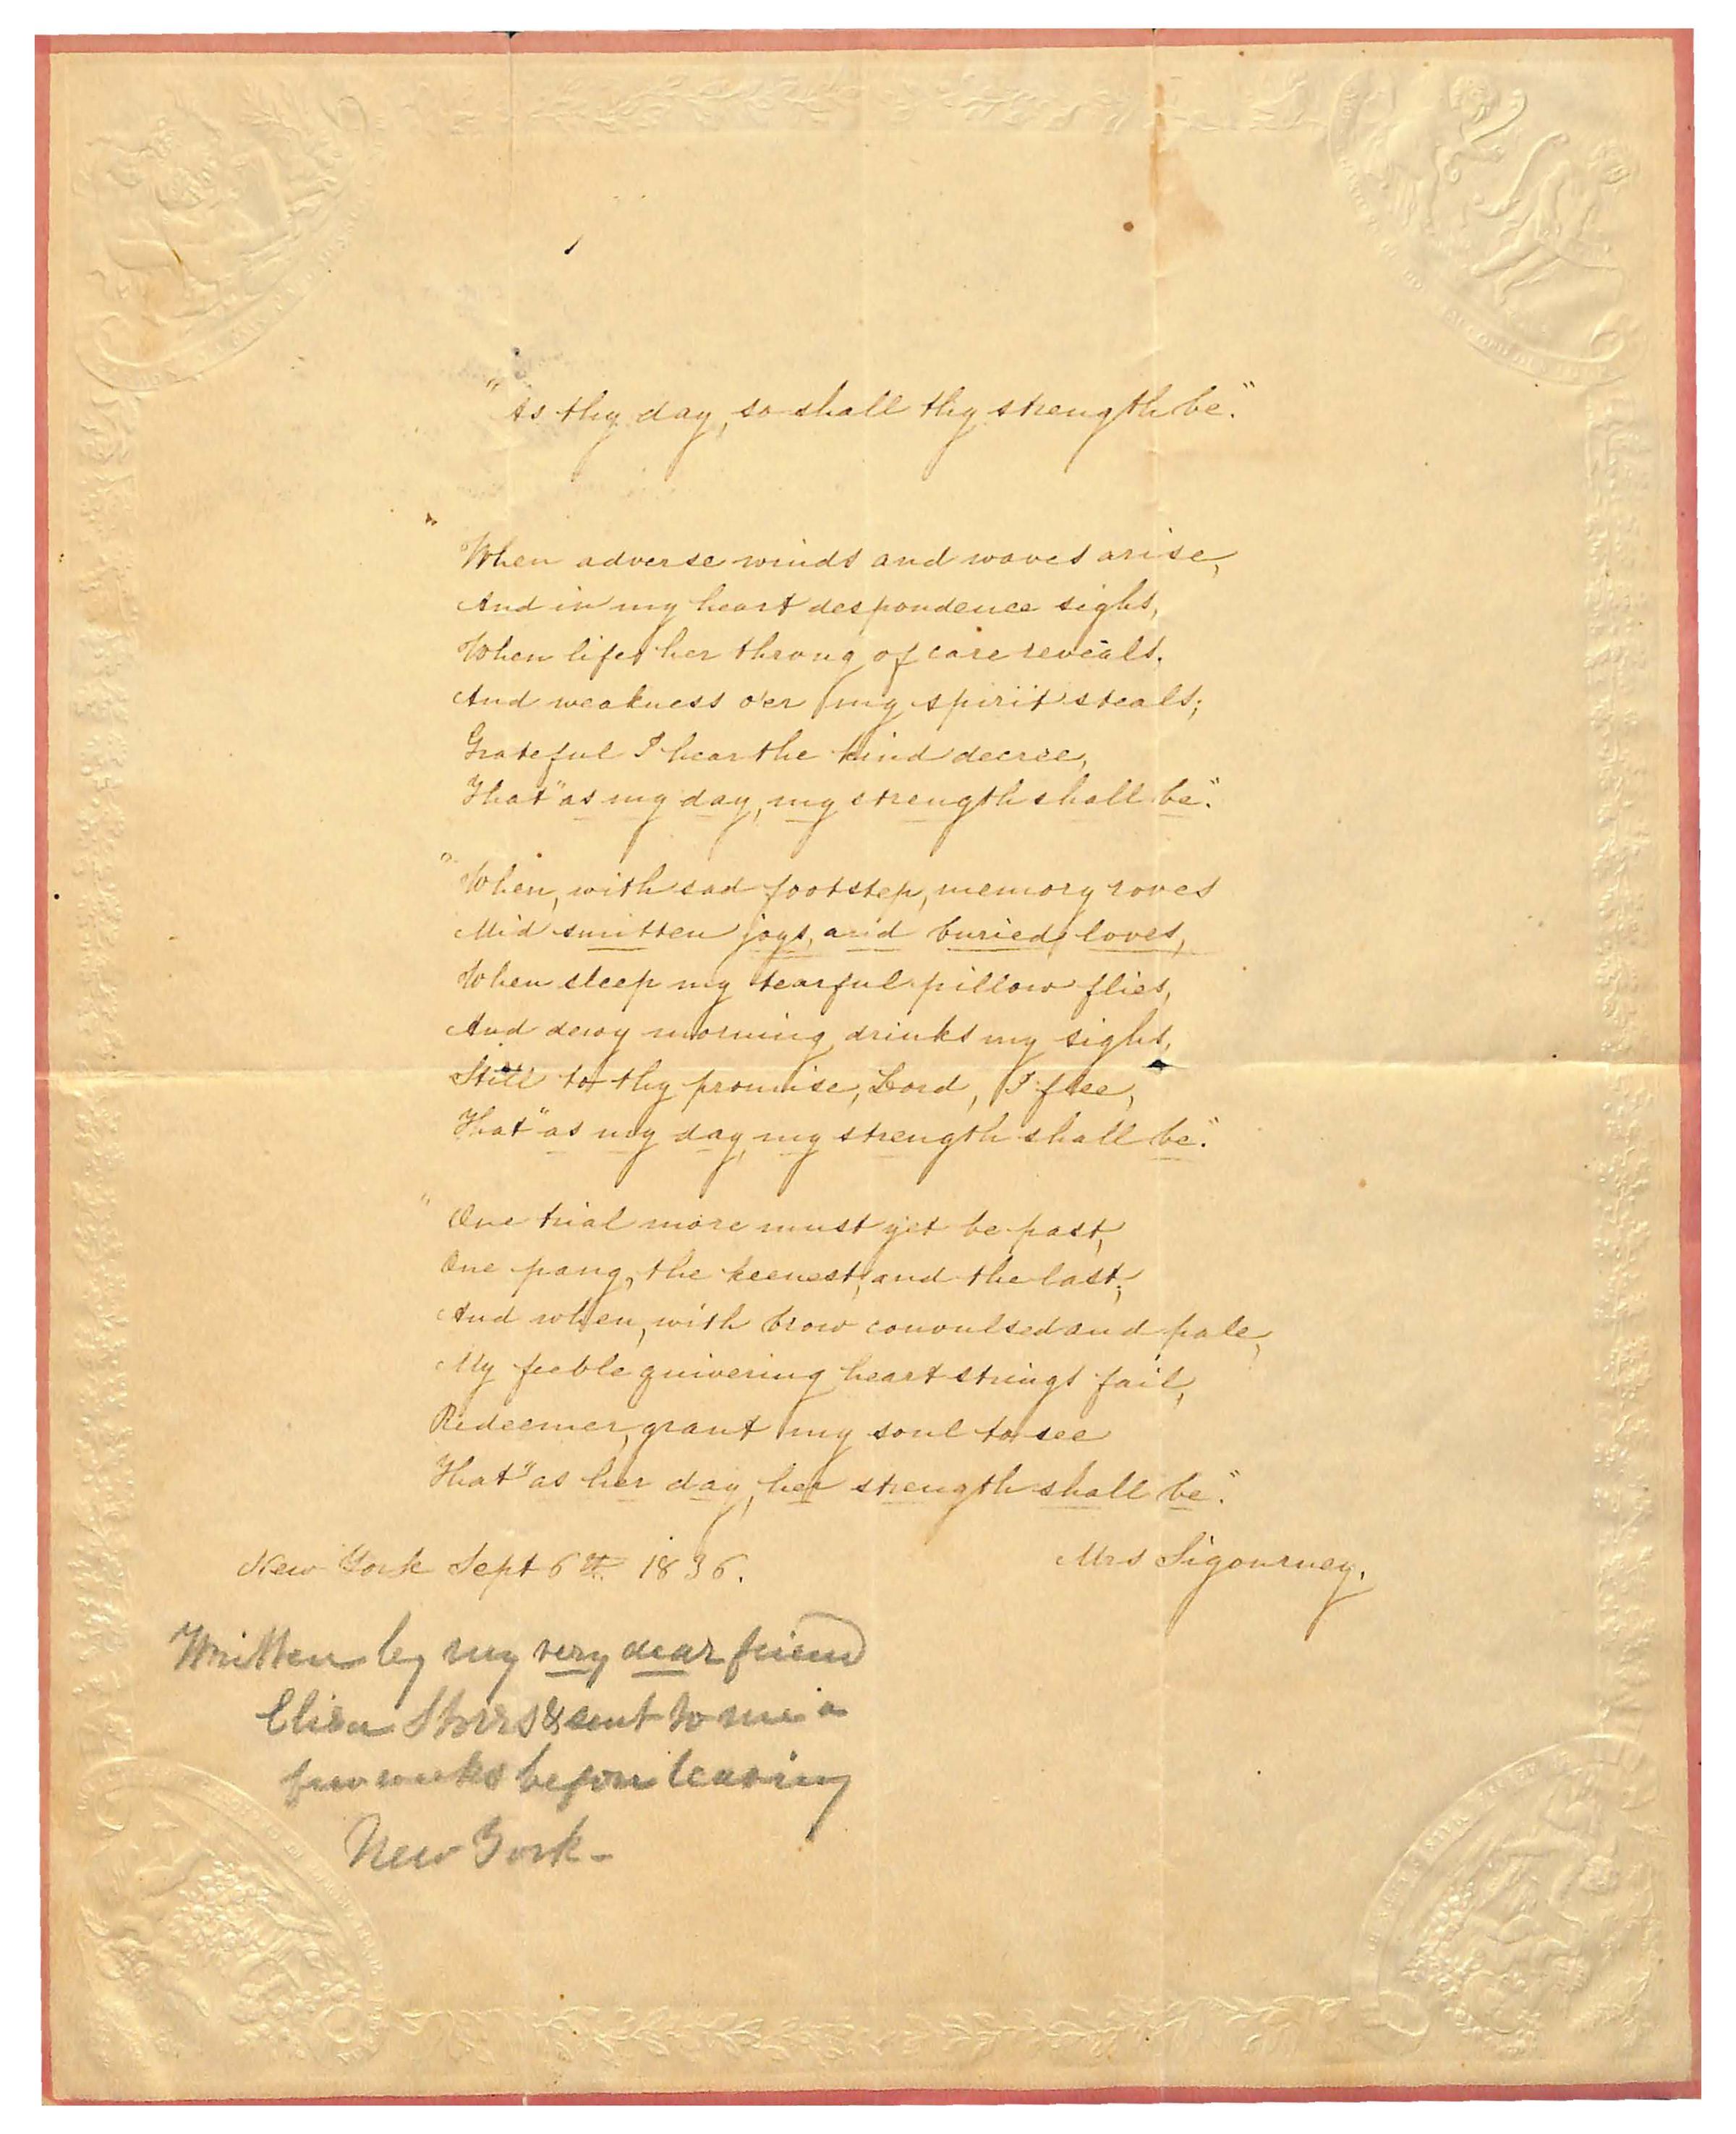 "As thy day, so shall thy strength be."
"When adverse winds and waves arise,
And in my heart despondence sighs,
When life her throng of care reveals,
And weakness o'er my spirit steals;
Grateful I hear the kind decree,
That "as my day, my strength shall be."
"When, with sad footstep, memory roves
Mid smitten joys, and buried loves,
When sleep my tearful pillow flies,
And dewy morning drinks my sighs,
Still to thy promise, Lord, I flee,
That "as my day, my strength shall be."
"One trial more must yet be past,
One pang, the keenest, and the last;
And when, with brow convulsed and pale,
My feeble quivering heart strings fail,
Redeemer, grant my soul to see
That "as her day, her strength shall be."
New York Sept 6th. 1836.
Mrs Sigourney.
Written by my very dear friend
Eliza Storrs & sent to me a
few weeks before leaving
New York -